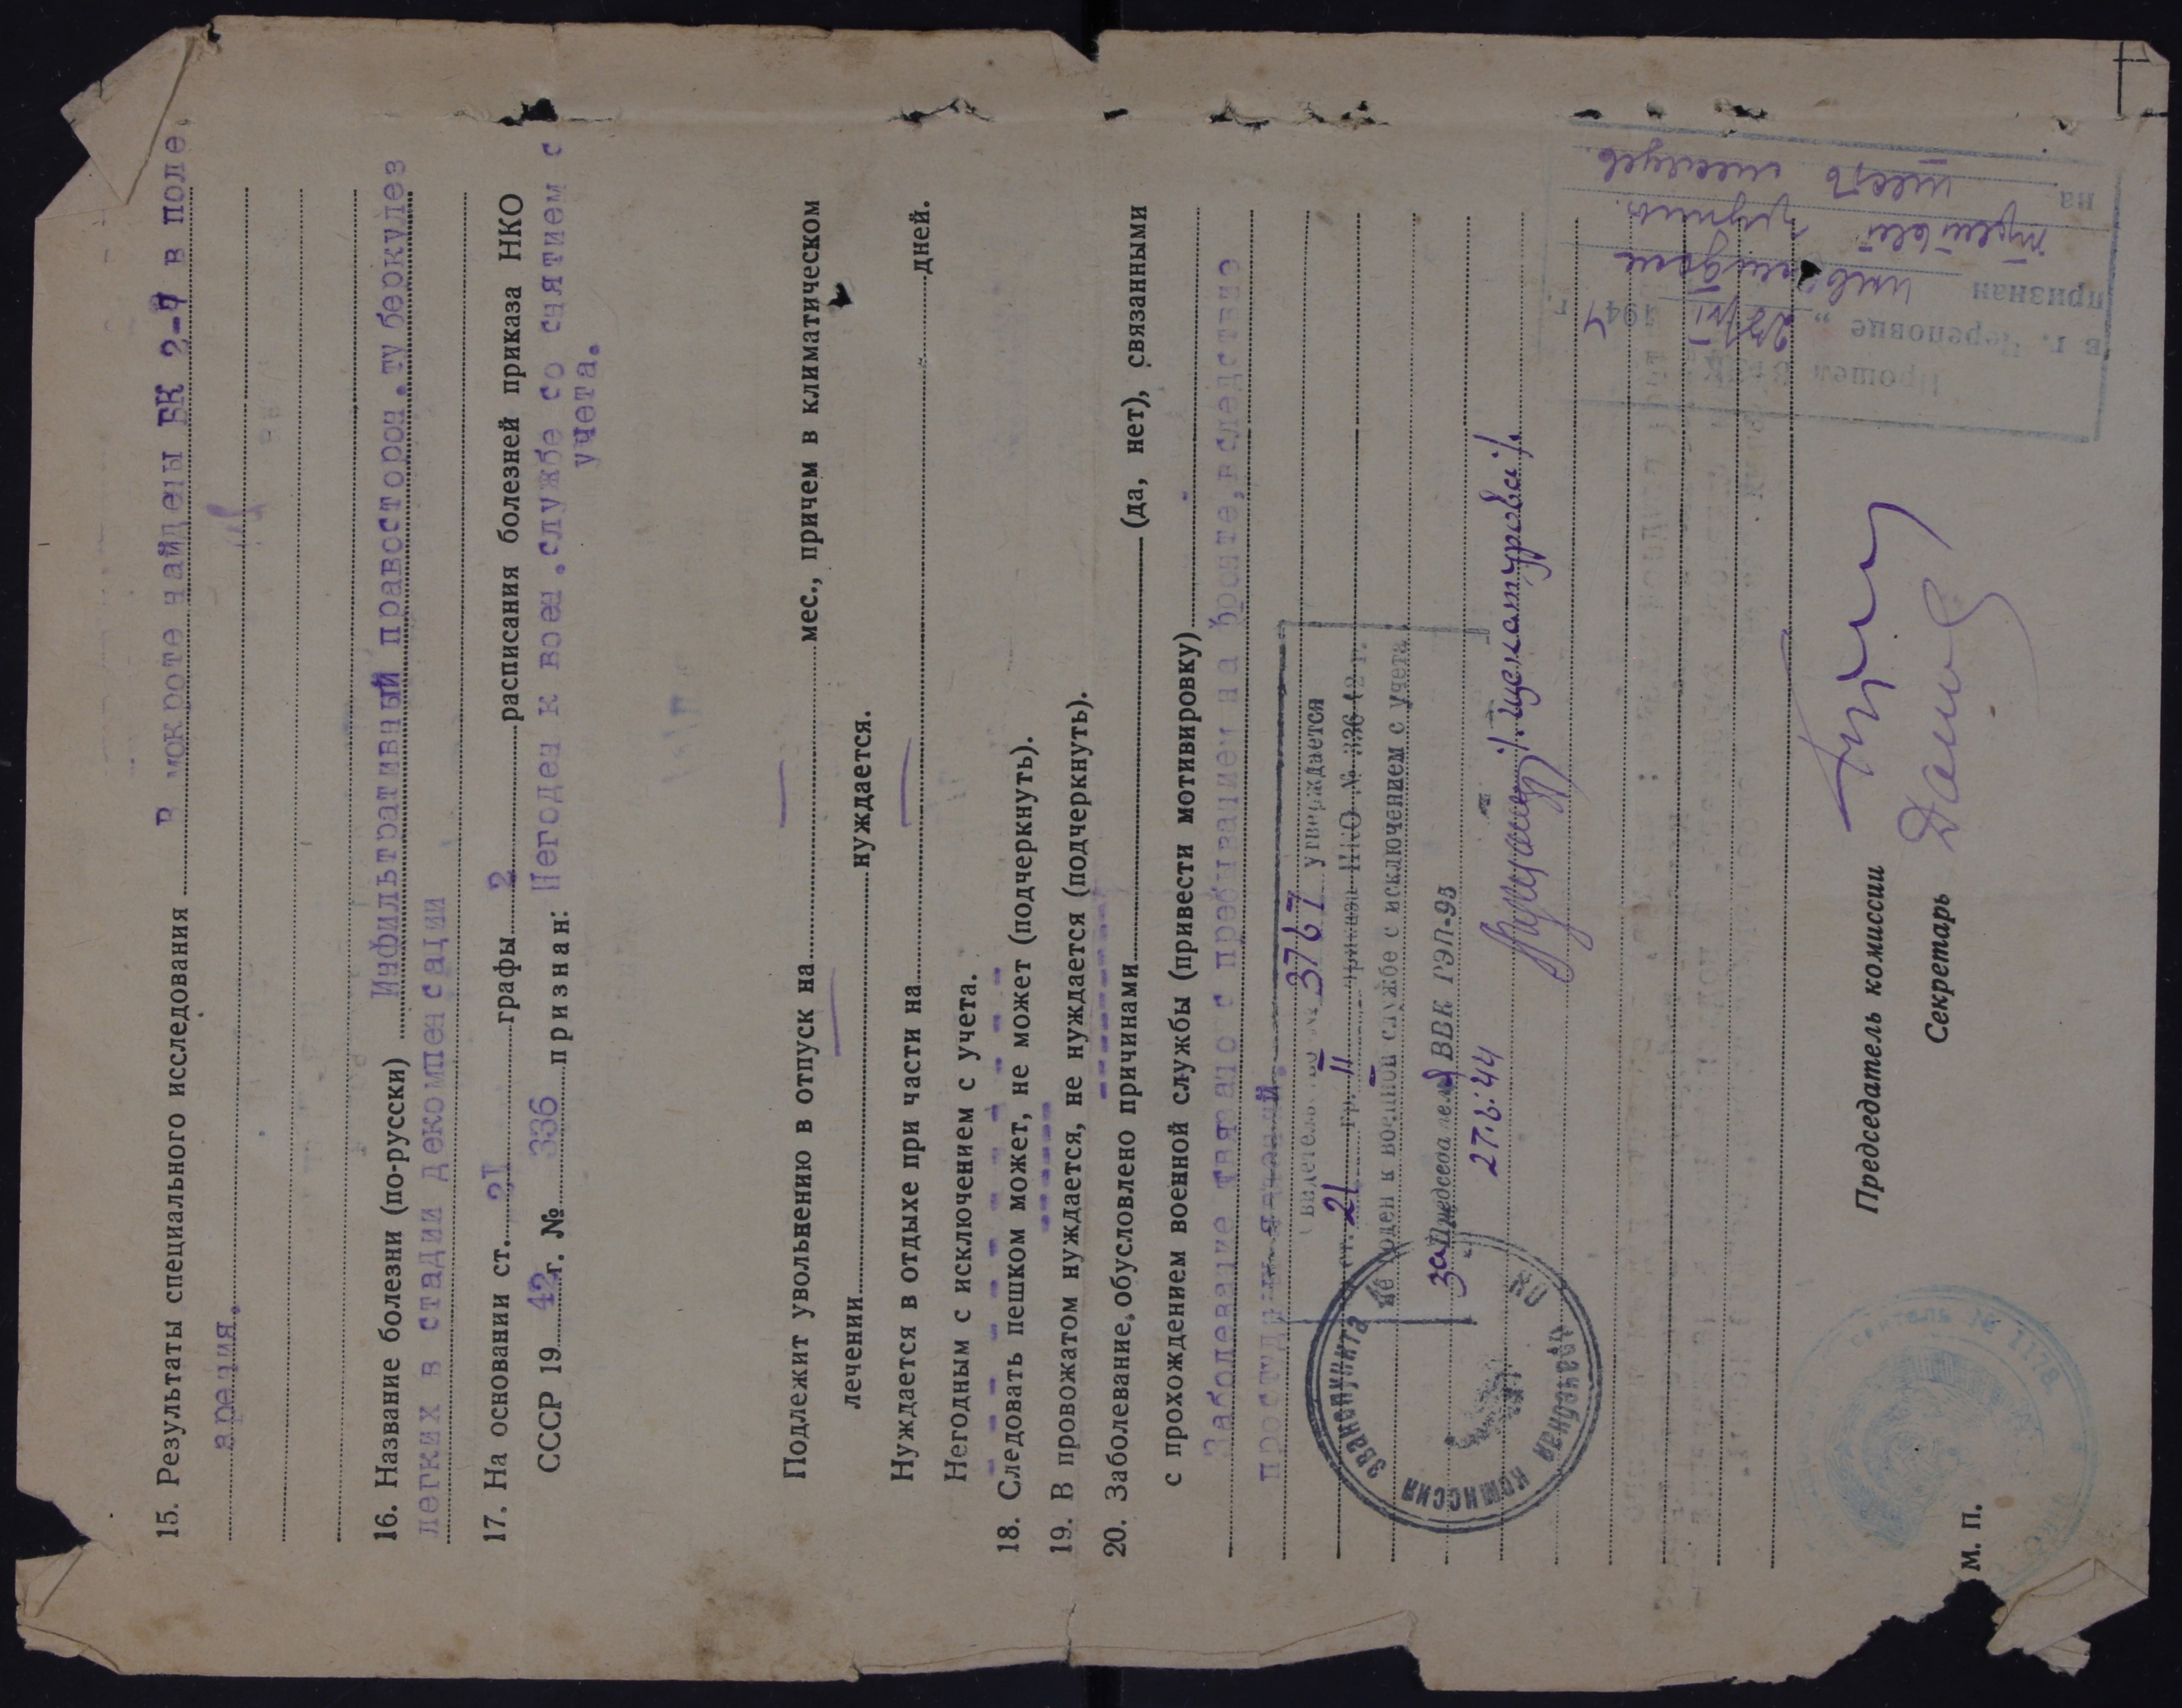 15. Результаты специального исследования В мокроте найдены БК 2-7 в поле
зрения.
16. Название болезни (по-русски) Инфильтративный правосторон. туберкулез
легких в стадии декомпенсации
17. На основании ст. 21 графы 2 расписания болезней приказа НКО
СССР 19 42 г. № 336 признан: Негоден к воен. службе со снятием с
учета.
Подлежит увольнению в отпуск на — мес., причем в климатическом
лечении — нуждается.
Нуждается в отдыхе при части на — дней.
Негодным с исключением с учета.
18. Следовать пешком может, не может (подчеркнуть).
19. В провожатом нуждается, не нуждается (подчеркнуть).
20. Заболевание, обусловлено причинами (да, нет), связанными
с прохождением военной службы (привести мотивировку)
Заболевание связано с пребыванием на фронте, вследствие
простудн
Свидетельство № 3767 утверждается
ст. 21 гр. II приказа НКО № 336 42 г.
Не годен к военной службе с исключением с учета
за Председателя ВВК РЭП-95
27.6.44 /Щекатурова/.
комиссия эвакопункта
Председатель комиссии
Секретарь
М. П.
№ 1178
Прошел ВТЭК
в г. Череповце " 28/VI 1944 г.
признан инвалидом
третьей группы
на шесть месяцев